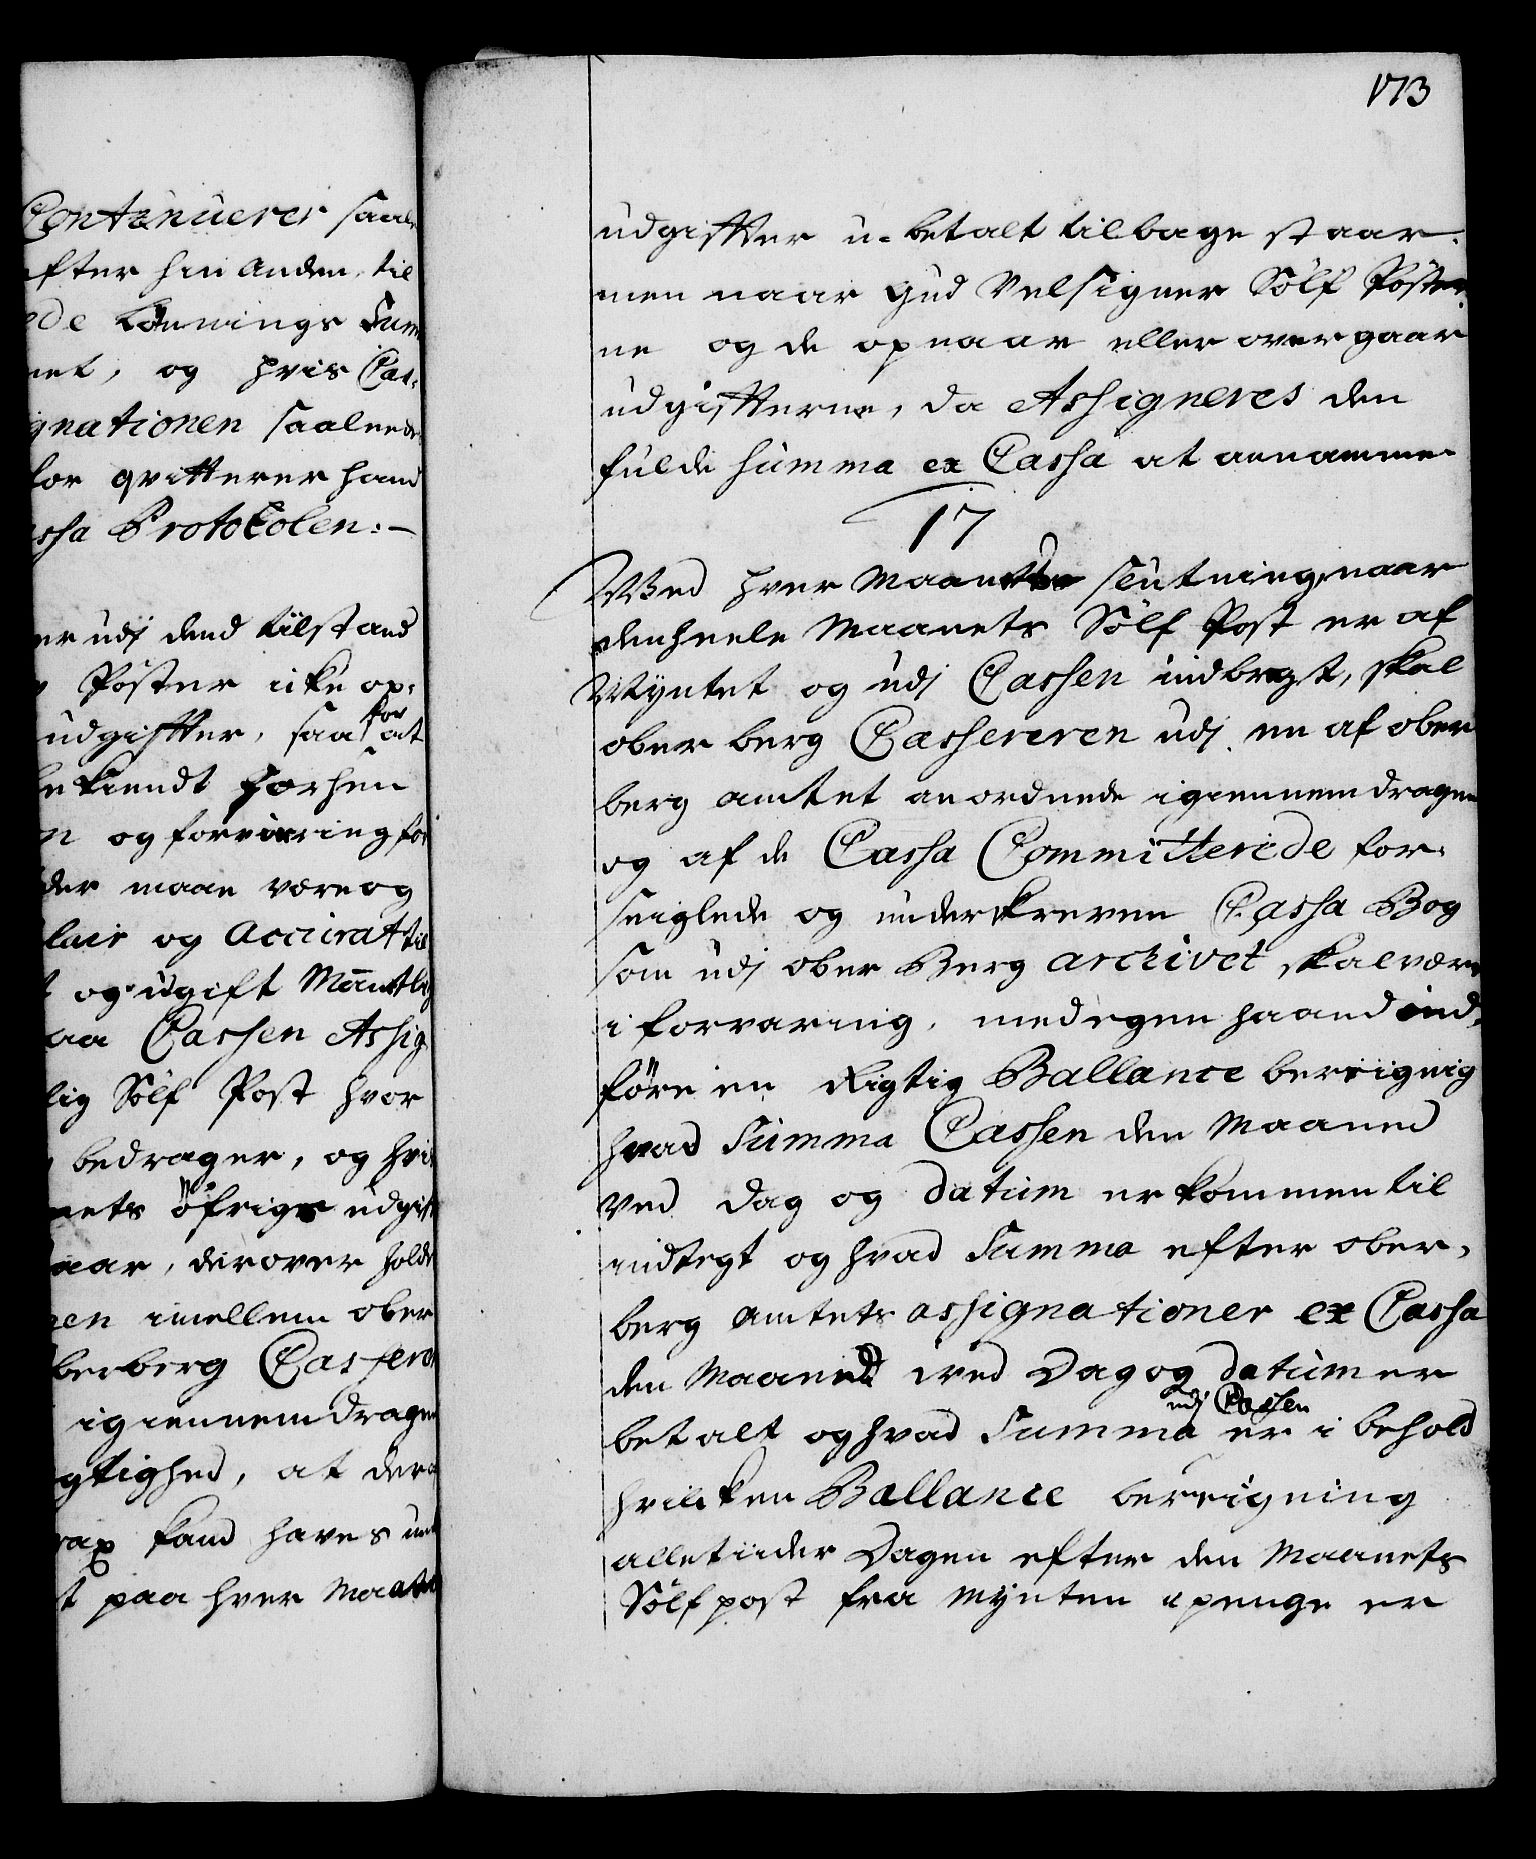 Continuerer saale
efter hin anden, til
ede Lønnings Sum
net, og hvis Cas:
ignationen saaleedes
for qvitterer hand
assa Protokolen:-
er udj dend tilstand
Poster icke op:
udgiffter, saa for at
bekiendt forhen
n og forvirring for
der maae være og
Clair og Accurat til
t og ugift Maanetlig
paa Cassen Assig
lig Sölf Post hvor
bedrager, og hvis
nets öfrige udgift
naar, derover holde
gen imellem ober
berberg Casserer
igiennemdragen
gtighed, at der
kand haves
t paa hver Maanet
173
udgiffter u-betalt tilbage staar.
men naar Gud Velsigner Sölf Poster
ne og de opnaar eller overgaar
udgiffterne, da Assigneres den
fulde Summa ex Cassa at annamme
17
Wed hver Maanets slutning, naar
den heele Maanets Sölf Post er af
Myntet og udj Cassen indbragt, skal
ober berg Cassereren udj en af ober
berg amtet anordnede igiennemdragen
og af de Cassa Committerede for-
seiglede og underskreven Cassa Bog
som udj ober Berg archivet skal være
i forvaring, med egen haand ind-
före en Rigtig Ballance beregnig
hvad Summa Cassen den Maaned
ved dag og datum er kommen til
indtegt og hvad Summa efter ober-
berg Amtets assignationer ex Cassa
den Maaned ved Dag og datum er
betalt og hvad Summa udj Cassen er i behold
hvilcken Ballance beregning
alletiider Dagen efter den Maanets
Sölf post fra Mynten i penge er